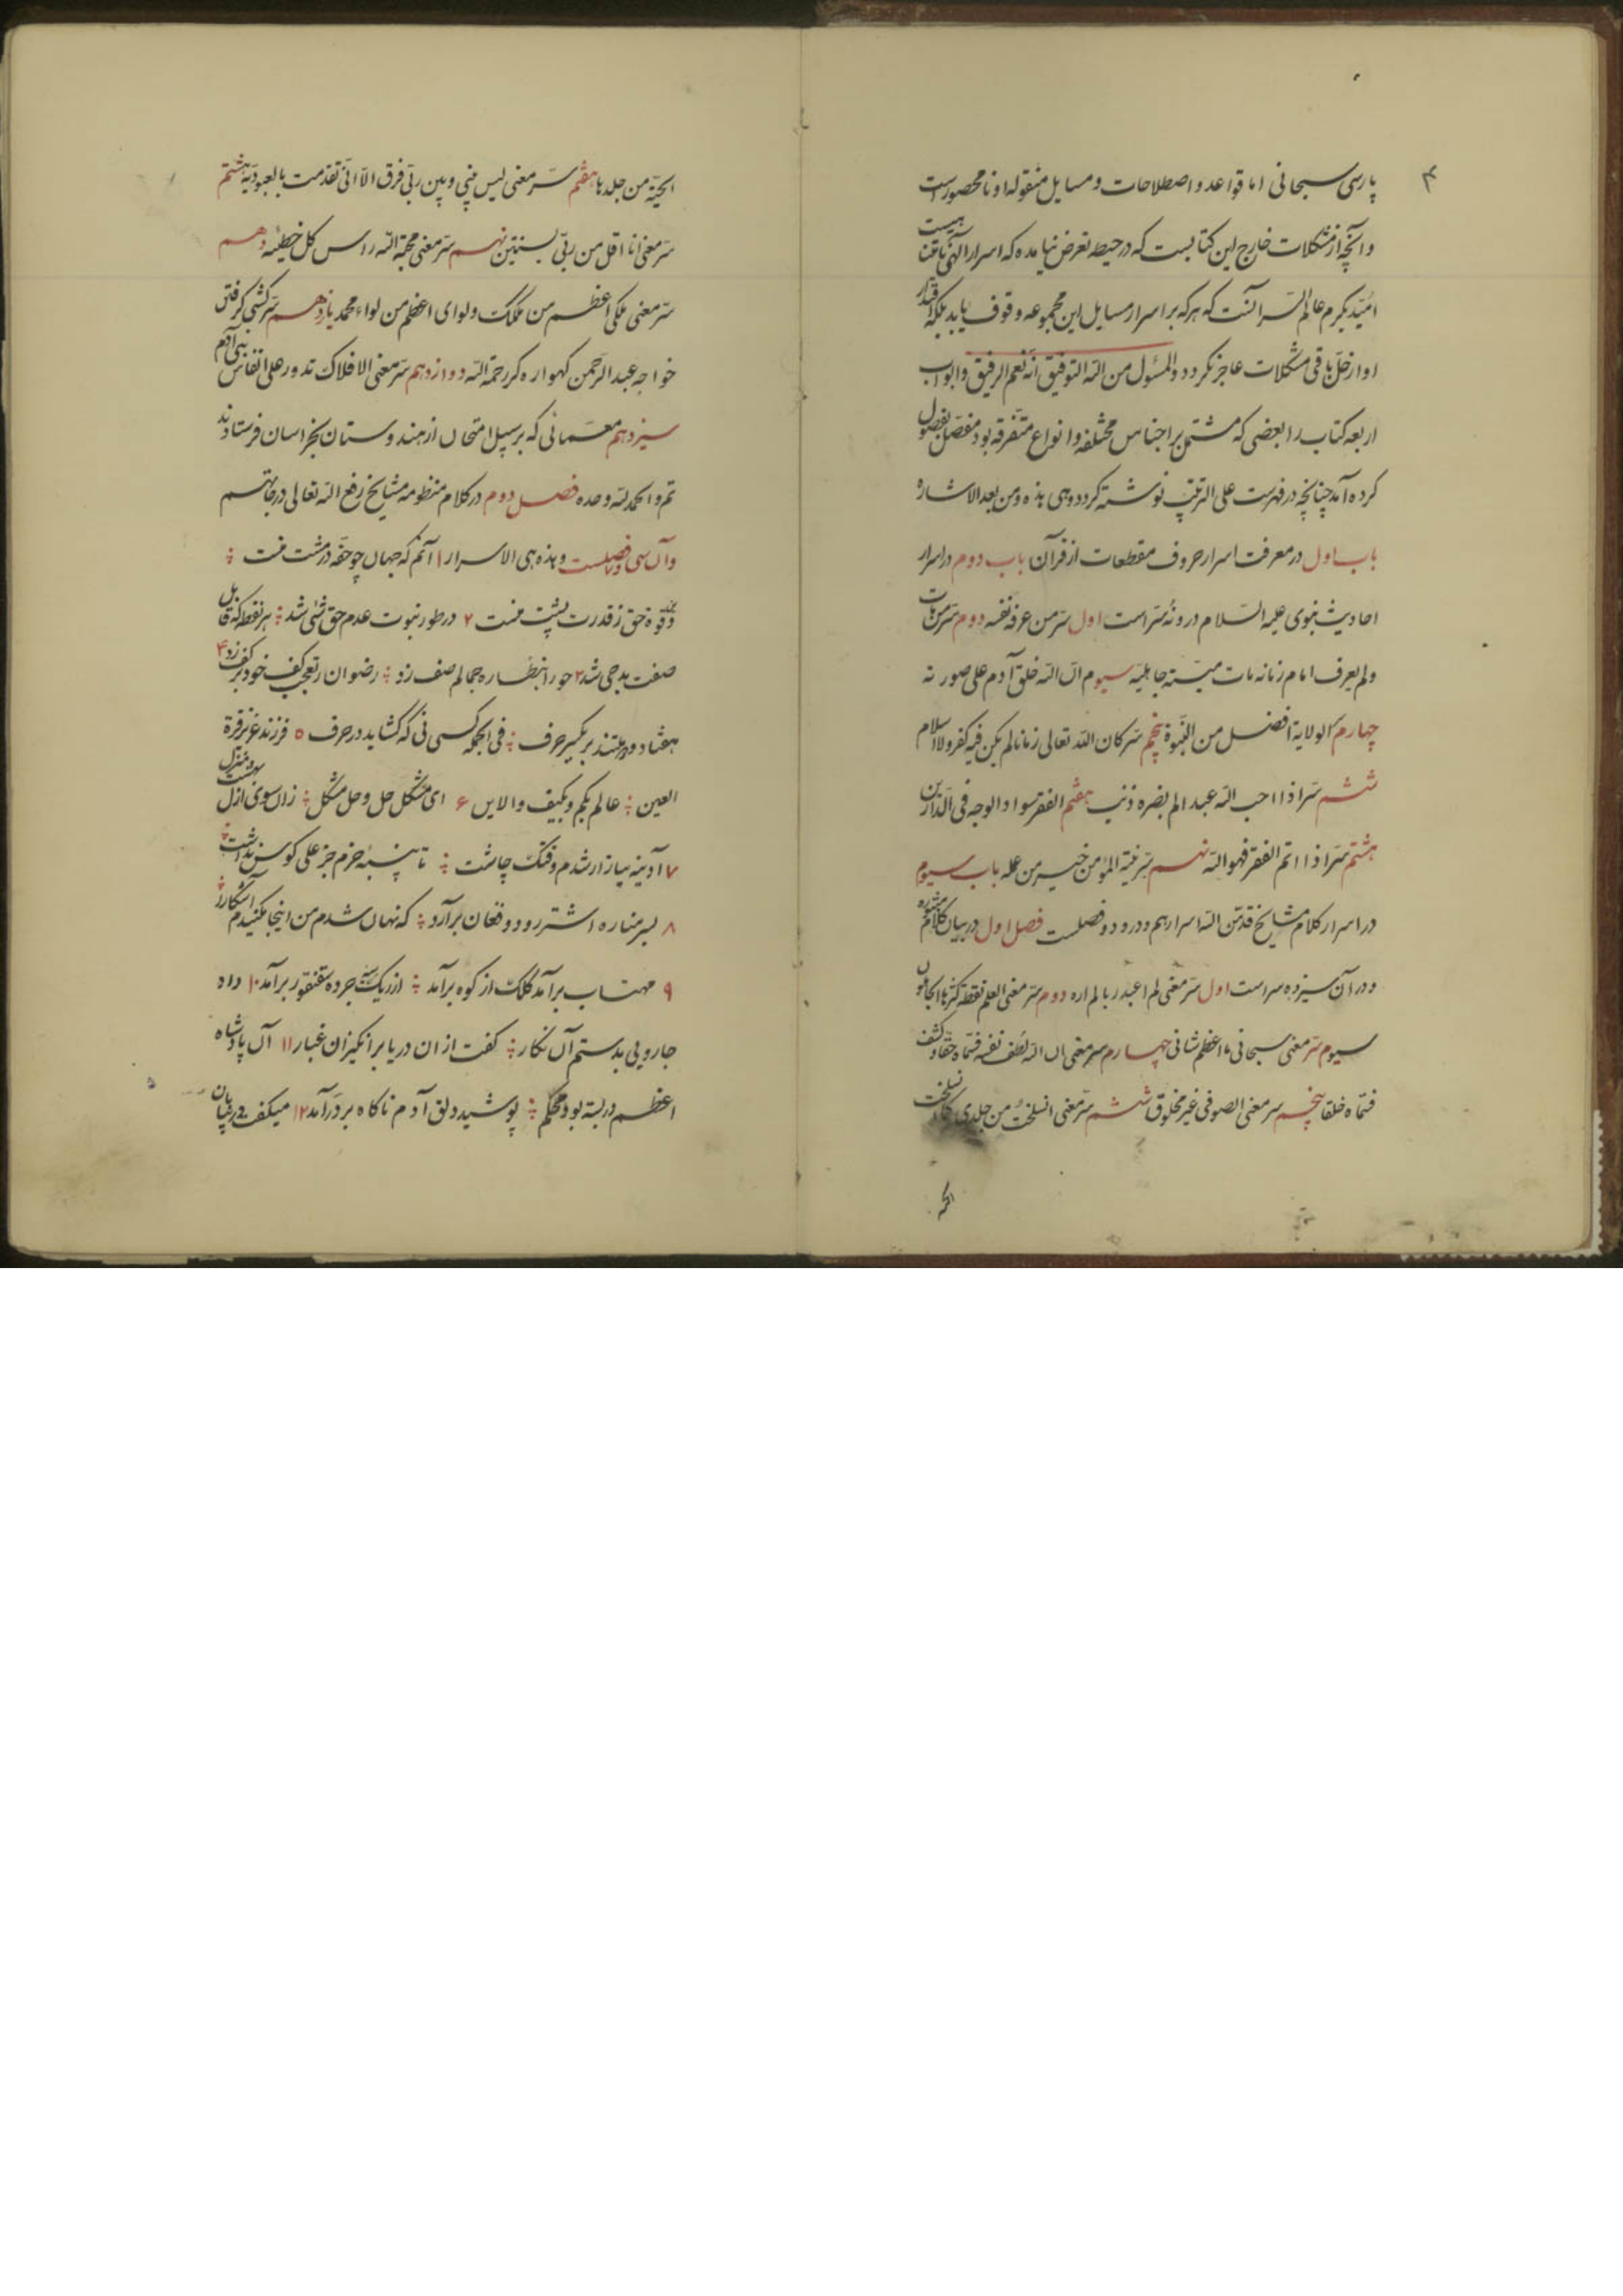 ۴
پارسی سبحانی اما قواعد و اصطلاحات و مسایل منقوله او نا محصورست
و آنچه از مشکلات خارج این کتابست که در حیطه تعرض نیامده که اسرار الهی نامتناهیست
امید بکرم عالم السر آنست که هرکه بر اسرار مسایل این مجموعه وقوف یابد بلکه اقتدار
او از حل باقی مشکلات عاجز نکردد والمسئول من الله التوفیق انه نعم الرفیق و ابواب
اربعه کتاب را بعضی که مشتمل بر اجناس مختلفه و انواع متفرقه بود مفصل بفصول
کرده آمد چنانچه در فهرست علی الترتیب نوشته کردد وهی هذه ومن بعد الاشاره
باب اول در معرفت اسرار حروف مقطعات از قرآن باب دوم در اسرار
احادیث نبوی علیه السلام در و نه سر است اول سر من عرف نفسه دوم سر من مات
ولم یعرف امام زمانه مات میته جاهلیه سیوم ان الله خلق آدم علی صورته
چهارم الولایة افضل من النبوة پنجم سر کان الله تعالی زمانا لم یکن فیه کفر ولا اسلام
ششم سر اذا احب الله عبدا لم یضره ذنب هفتم الفقر سواد الوجه فی الدارین
هشتم سر اذا اتم الفقر فهو الله نهم سر نیة المؤمن خیر من عمله باب سیوم
در اسرار کلام مشایخ قدس الله اسرارهم و درو دو فصلست فصل اول در بیان کلام منثوره
و در آن سیزده سر است اول سر معنی لم اعبد ربا لم اره دوم سر معنی العلم نقطة کثرها الجاهلون
سیوم سر معنی سبحانی ما اعظم شانی چهارم سر معنی ان الله لطف نفسه فسماه حقا و کثف
فسماه خلقا پنجم سر معنی الصوفی غیر مخلوق ششم سر معنی انسلخت من جلدی کما انسلخت
الحیة
الحیة من جلدها هفتم سر معنی لیس بینی و بین ربی فرق الا انی تقدمت بالعبودیة هشتم
سر معنی انا اقل من ربی بسنتین نهم سر معنی محبة الله راس کل خطیئه دهم
سر معنی ملکی اعظم من ملک و لوای اعظم من لواء محمد یازدهم سر کشتی کرفتن
خواجه عبد الرحمن کهواره کر رحمة الله دوازدهم سر معنی الافلاک تدور علی انفاس بنی آدم
سیزدهم معمائی که بر سبیل امتحان از هندوستان بخراسان فرستادند
تم و الحمد لله وحده فصل دوم در کلام منظومه مشایخ رفع الله تعالی درجاتهم
و آن سی و فصلست و هذه هی الاسرار ۱ آنم که جهان چو حقه در مشت منست
وز قوة حق ز قدرت پشت منست ۲ در طور نبوت عدم حق شی شد هر نقطه که قابل
صفت بد حی شد ۳ حورا بنظاره جمالم صف زد رضوان ز تعجب کف خود بر کف زد ۴
هفتاد و دو ملتند بر یکسر حرف فی الجمله کسی نی که کشاید در حرف ۵ فرزند عزیز قرة
العین عالم بکم و بکیف و الاین ۶ ای مشکل حل و حل مشکل زان سوی ازل بهشت منزل
۷ آدینه ببازار شدم وقتک چاشت تا پنبه خرم جز علی کوس نداشت
۸ بسر مناره اشتر رود و فغان برآرد که نهان شدم من اینجا مکنیدم آشکارا
۹ مهتاب برآمد کلک از کوه برآمد از ریک جرده سقنقور برآمد ۱۰ داد
جارویی بدستم آن نکار کفت از ان دریا برانکیزان غبار ۱۱ آن پادشاه
اعظم در بسته بود محکم پوشید دلق آدم ناکاه بر در آمد ۱۲ میکفت در بیابان